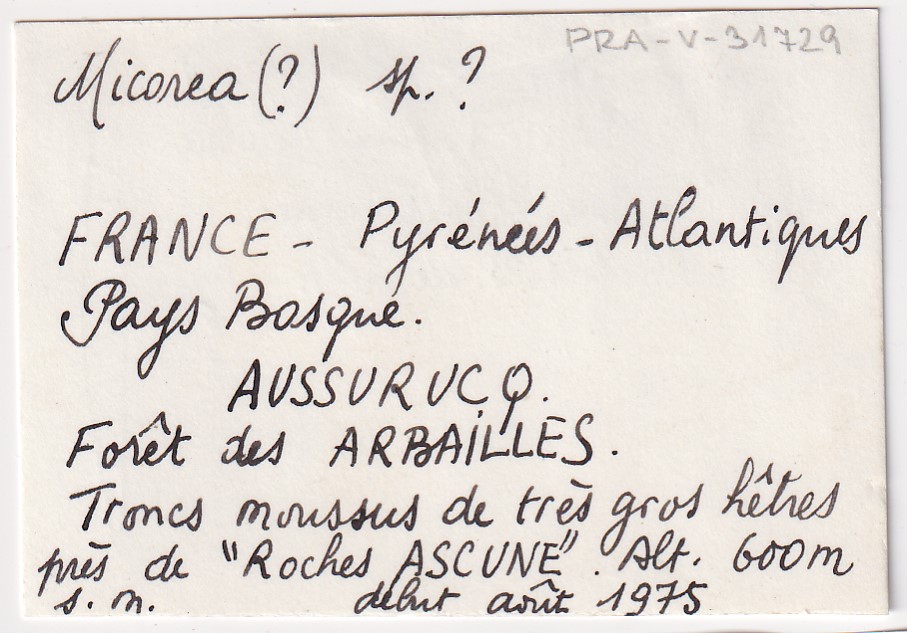 PRA-V-31729
Micorea (?) sp. ?
FRANCE - Pyrénées - Atlantiques
Pays Basque.
AUSSURUCQ.
Forêt des ARBAILLES.
Troncs moussus de très gros hêtres
près de "Roches ASCUNE". Alt. 600m
s. m. début août 1975